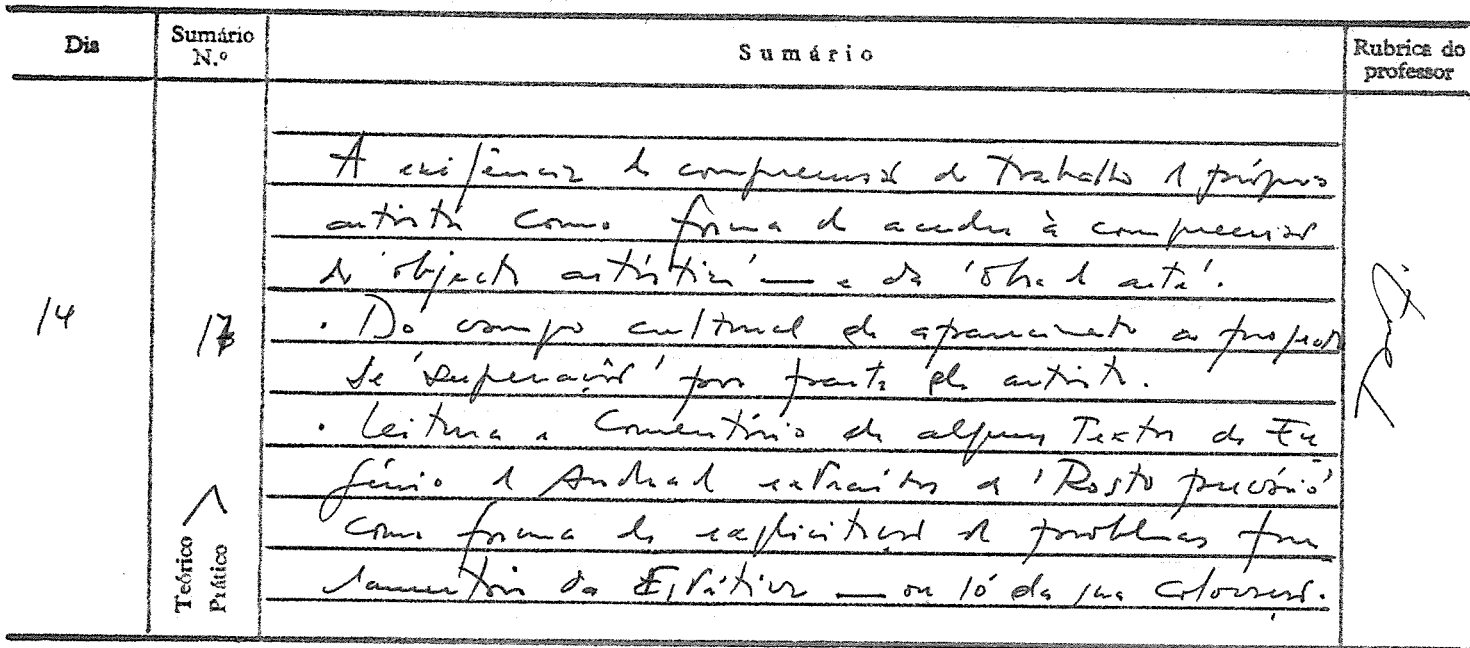 Dia
Sumário N.º
Sumário
Rubrica do professor
14
17
Teórico
Prático
A exigência de compreensão do trabalho do próprio
artista como forma de aceder à compreensão
do 'objecto artístico' — e da 'obra de arte'.
. Do campo cultural de aparecimento ao
de 'superação' por parte do artista.
. Leitura e Comentário de alguns Textos de Eu
génio de Andrade extraídos de 'Rosto precário'
como forma de explicitação de problemas fun
damentais da Estética — ou só da sua colocação.